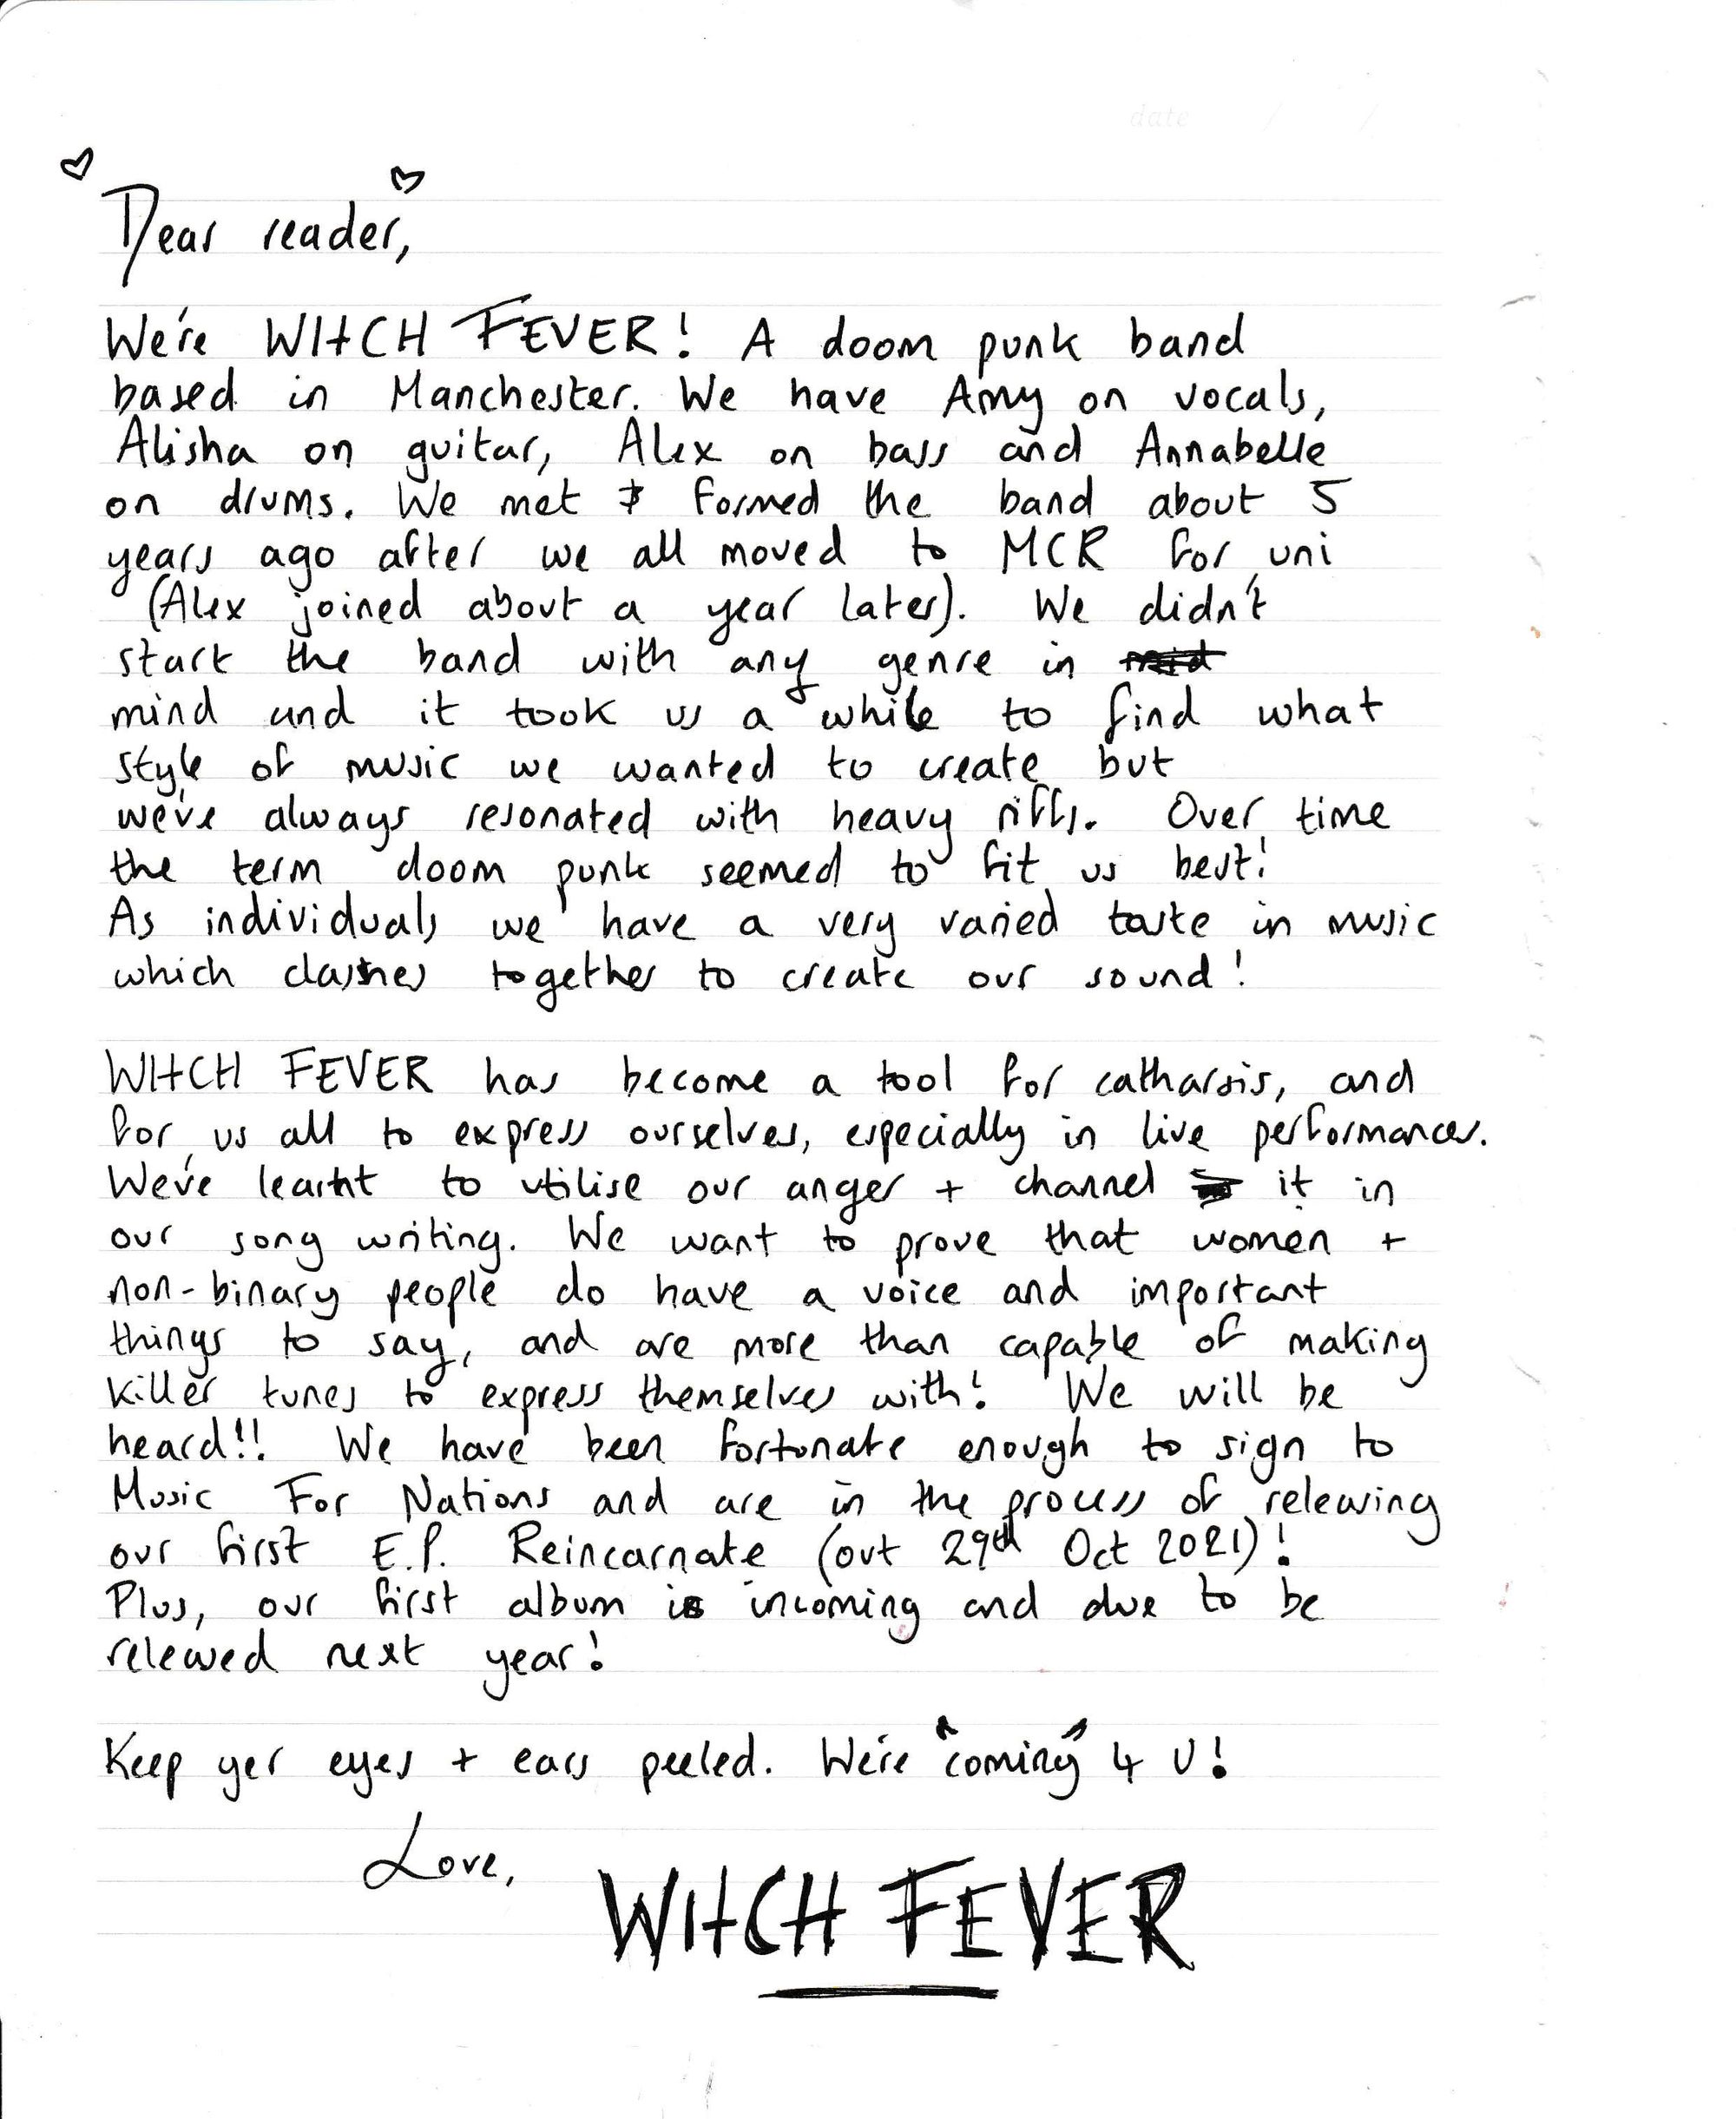 date / /
Dear reader,
We're WITCH FEVER! A doom punk band
based in Manchester. We have Amy on vocals,
Alisha on guitar, Alex on bass and Annabelle
on drums. We met & formed the band about 5
years ago after we all moved to MCR for uni
(Alex joined about a year later). We didn't
start the band with any genre in
mind and it took us a while to find what
style of music we wanted to create but
we've always resonated with heavy riffs. Over time
the term doom punk seemed to fit us best!
As individuals we have a very varied taste in music
which clashes together to create our sound!
WITCH FEVER has become a tool for catharsis, and
for us all to express ourselves, especially in live performances.
We've learnt to utilise our anger + channel it in
our song writing. We want to prove that women +
non-binary people do have a voice and important
things to say, and are more than capable of making
killer tunes to express themselves with! We will be
heard!! We have been fortunate enough to sign to
Music For Nations and are in the process of releasing
our first E.P. Reincarnate (out 29th Oct 2021)!
Plus, our first album is incoming and due to be
released next year!
Keep yer eyes + ears peeled. We're coming 4 U!
Love,
WITCH FEVER